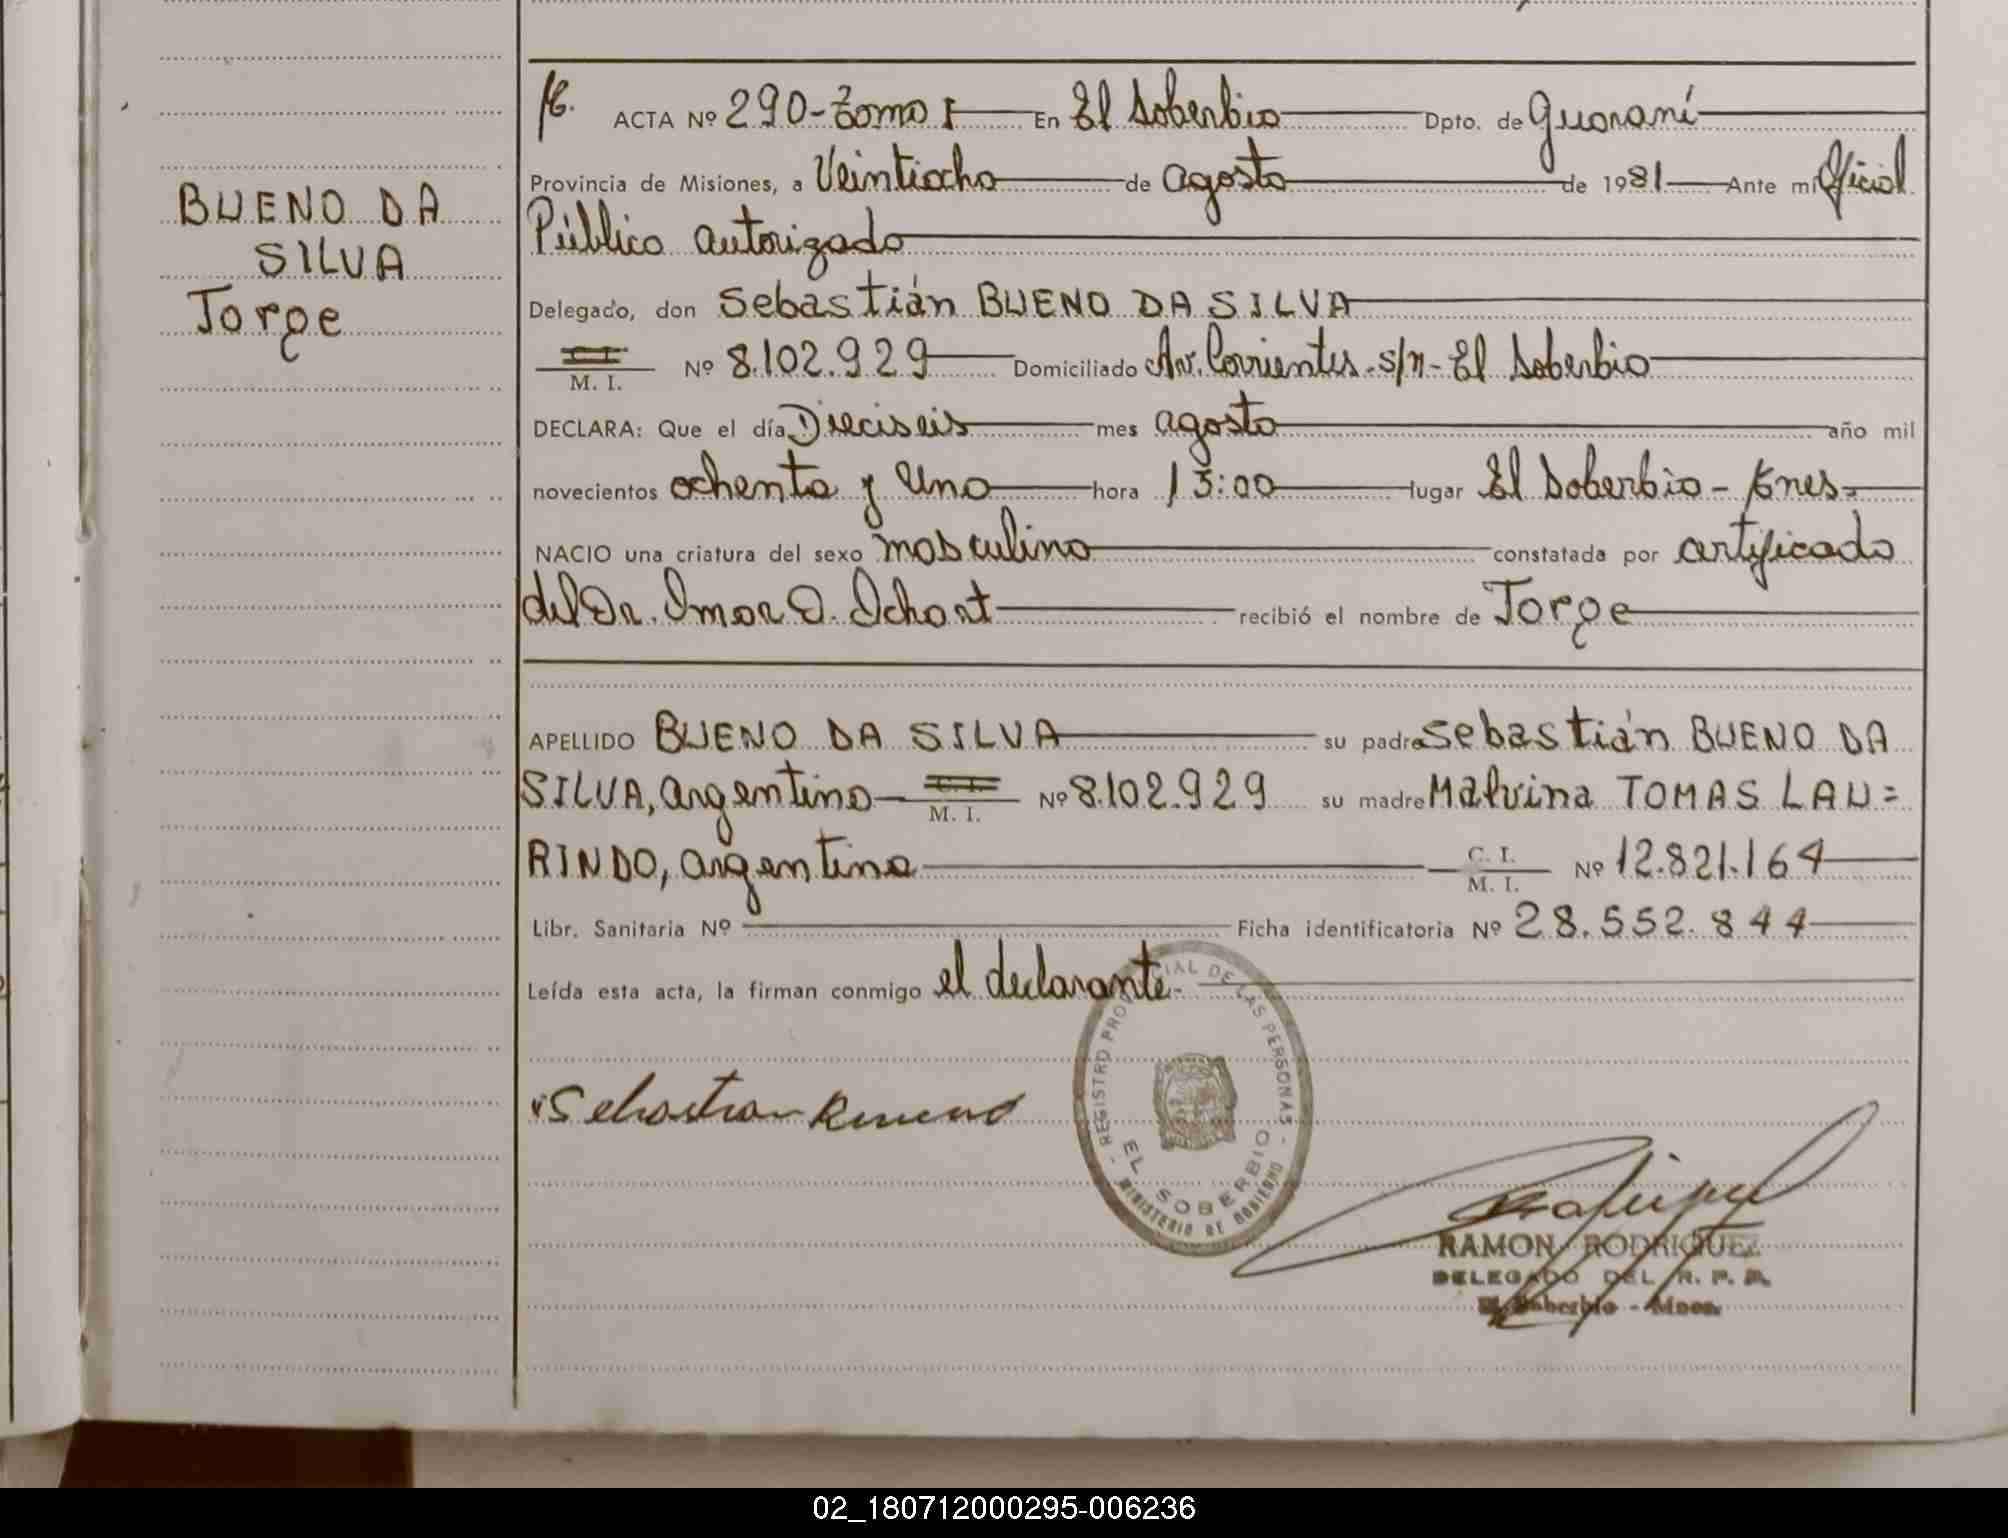 BUENO DA
SILVA
Jorge
ACTA Nº 290-Tomo I En El Soberbio Dpto. de Guaraní
Provincia de Misiones, a Veintiocho de agosto de 1981 Ante mi Oficial
Público autorizado
Delegado, don Sebastián BUENO DA SILVA
M. I. Nº 8.102.929 Domiciliado Av. Corrientes. s/n - El Soberbio
DECLARA: Que el día Dieciseis mes agosto año mil
novecientos ochenta y uno hora 13:00 lugar El Soberbio -
NACIO una criatura del sexo masculino constatada por certificado
del Dr. Omar O. recibió el nombre de Jorge
APELLIDO BUENO DA SILVA su padre Sebastián BUENO DA
SILVA, argentino M. I. Nº 8.102.929 su madre Malvina TOMAS LAU=
RINDO, argentina C. I. M. I. Nº 12.821.164
Libr. Sanitaria Nº Ficha identificatoria Nº 28.552.844
Leída esta acta, la firman conmigo el declarante.
REGISTRO PROVINCIAL DE LAS PERSONAS
EL SOBERBIO
MINISTERIO DE GOBIERNO
Sebastian Bueno
RAMON RODRIGUEZ
DELEGADO DEL R. P. P.
El Soberbio - Mnes.
02_180712000295-006236